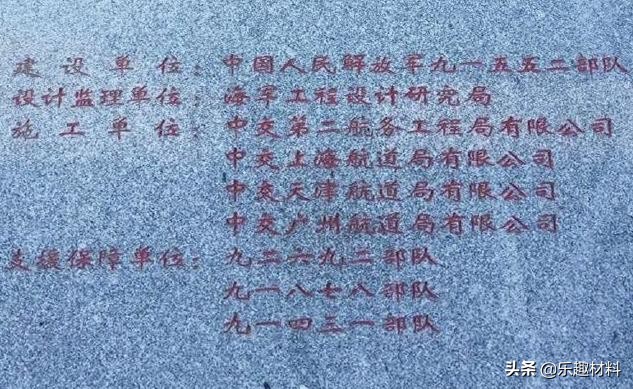 建设单位：中国人民解放军九一五五二部队
设计监理单位：海军工程设计研究局
施工单位：中交第二航务工程局有限公司
中交上海航道局有限公司
中交天津航道局有限公司
中交广州航道局有限公司
支援保障单位：九二六九二部队
九一八七八部队
九一四三一部队
头条 @乐趣材料